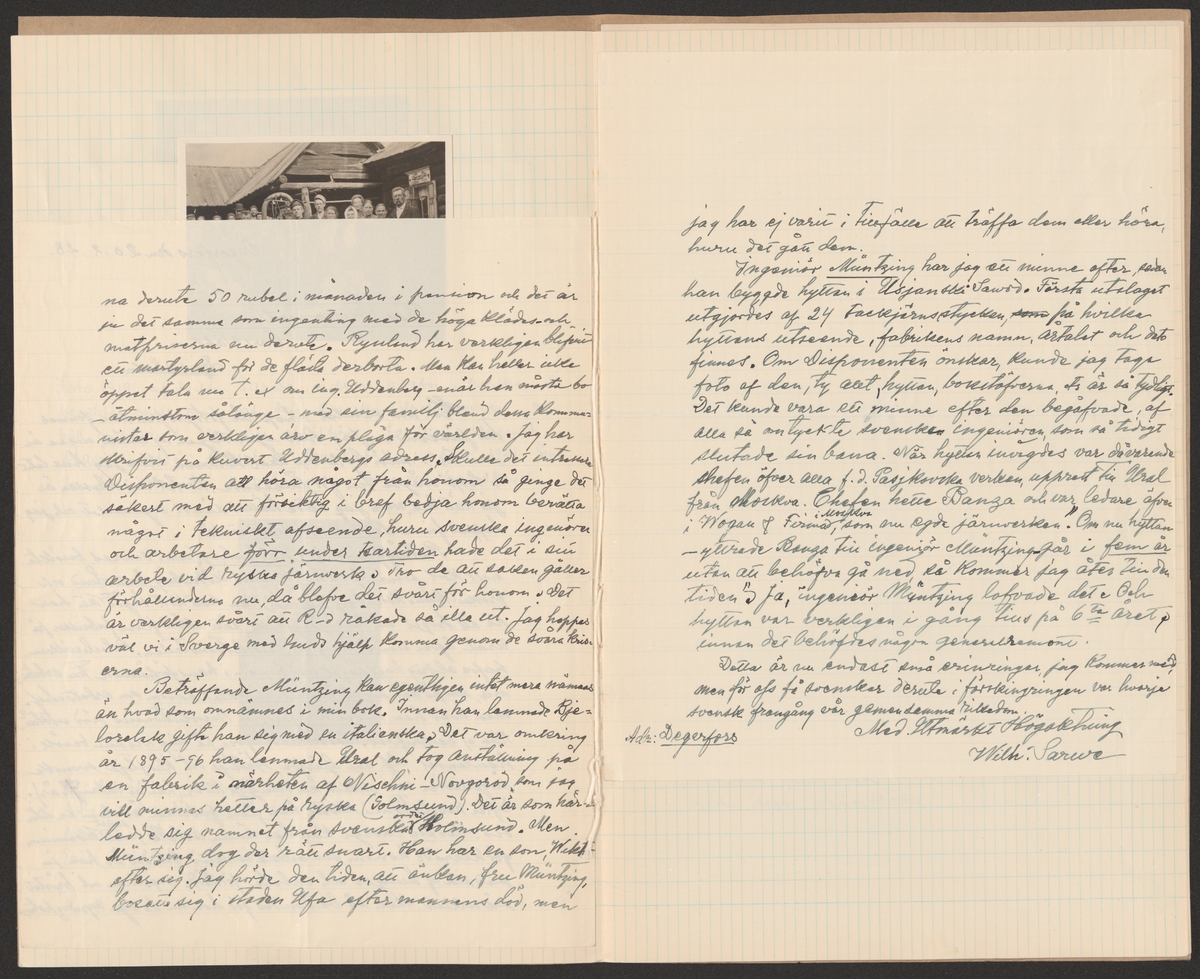 na derute 50 rubel i månaden i pension och det är
ju det samma som ingenting med de höga kläder- och
matpriserna nu derute. Ryssland har verkligen blifvit
ett martyrland för de flesta derborta. Man kan heller icke
öppet tala nu t. ex om ing. Uddenberg - enär han måste bo
- åtminstone sålänge - med sin familj bland dem kommu-
nistar som verkligen äro en plåga för världen. Jag har
skrifvit på kuvert Uddenbergs adress. Skulle det intressera
Disponenten att höra något från honom så ginge det
säkert med att försiktig i bref bedja honom berätta
något i tekniskt afseende, huru svenska ingeniörer
och arbetare förr under tsartiden hade det i sin
arbete vid ryska järnverk. Tro de att saken gäller
förhållanderna nu, då blefve det svårt för honom. Det
är verkligen svårt att R-d råkade så illa ut. Jag hoppas
väl vi i Sverge med Guds hjälp komma genom de svåra kris-
erna.
Beträffande Müntzing kan egentligen intet mera nämnas
än hvad som omnämnes i min bok. Innan han lemnade Bje-
loretsk gifte han sig med en italienska. Det var omkring
år 1895-96 han lemnade Ural och tog anställning på
en fabrik i närheten af Nischni-Novgorod, som jag
vill minnas hetter på ryska (Golmsund). Det är som här-
ledde sig namnet från svenska ordet Holmsund. Men
Müntzing dog der rätt snart. Han har en son,
efter sig. Jag hörde den tiden, att änkan, fru Müntzing,
bosatt sig i staden Ufa efter mannens död, men
jag har ej varit i tillfälle att träffa dem eller höra,
huru det gått dem.
Ingeniör Müntzing har jag ett minne efter, sedan
han byggde hyttan i Usjanski Sawod. Första utslaget
utgjordes af 24 tackjärnsstycken, som på hvilka
hyttans utseende, fabrikens namn, årtalet och dato
finnes. Om Disponenten önskar, kunde jag taga
foto af den, ty allt, hyttan, bokstäfverna etc är så tydligt.
Det kunde vara ett minne efter den begåfvade, af
alla så omtyckte svenska ingeniören, som så tidigt
slutade sin bana. När hyttan invigdes var dåvarende
chefen öfver alla f. d. Pasjkovska verken, upprest till Ural
från Moskva. Chefen hette Banza och var ledare äfven
i Wogau & Firma, i Moskva som nu egde järnverken. "Om nu hyttan
- yttrade Banza till ingeniör Müntzing går i fem år
utan att behöfva gå ned så kommer jag åter till den
tiden". Ja, ingeniör Müntzing lofvade det. Och
hyttan var verkligen i gång tills på 6te året,
innan det behöfdes någon generalremont.
Detta är nu endast små erinringar, jag kommer med,
men för oss få svenskar derute i förskingringen var hvarje
svensk framgång vår gemensamma rikedom.
Med Utmärkt Högaktning
Adr: Degerfors
Wilh. Sarwe